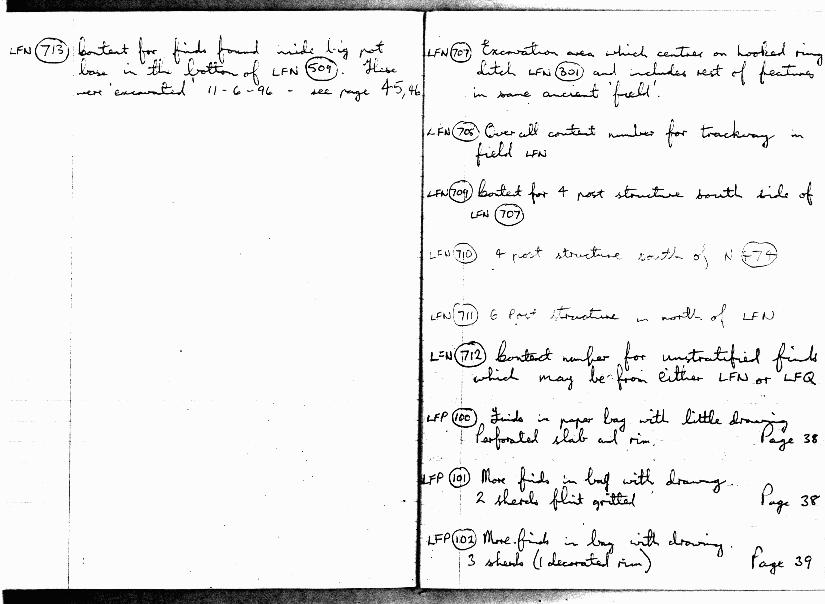 LFN 713 Context for finds found inside big pot
base in the bottom of LFN 509. These
were 'excavated' 11-6-96 - see page 45, 46
LFN 707 Excavation area which centres on hooked ring
ditch LFN 301 and includes rest of features
in same ancient 'field'.
LFN 708 Overall context number for trackway in
field LFN
LFN 709 Context for 4 post structure south side of
LFN 707
LFN 710 4 post structure south of N 74
LFN 711 6 Post structure in north of LFN
LFN 712 Context number for unstratified finds
which may be from either LFN or LFQ
LFP 100 Finds in paper bag with little drawing
Perforated slab and rim. Page 38
LFP 101 More finds in bag with drawing.
2 sherds flint gritted Page 38
LFP 102 More finds in bag with drawing.
3 sherds (1 decorated rim) Page 39